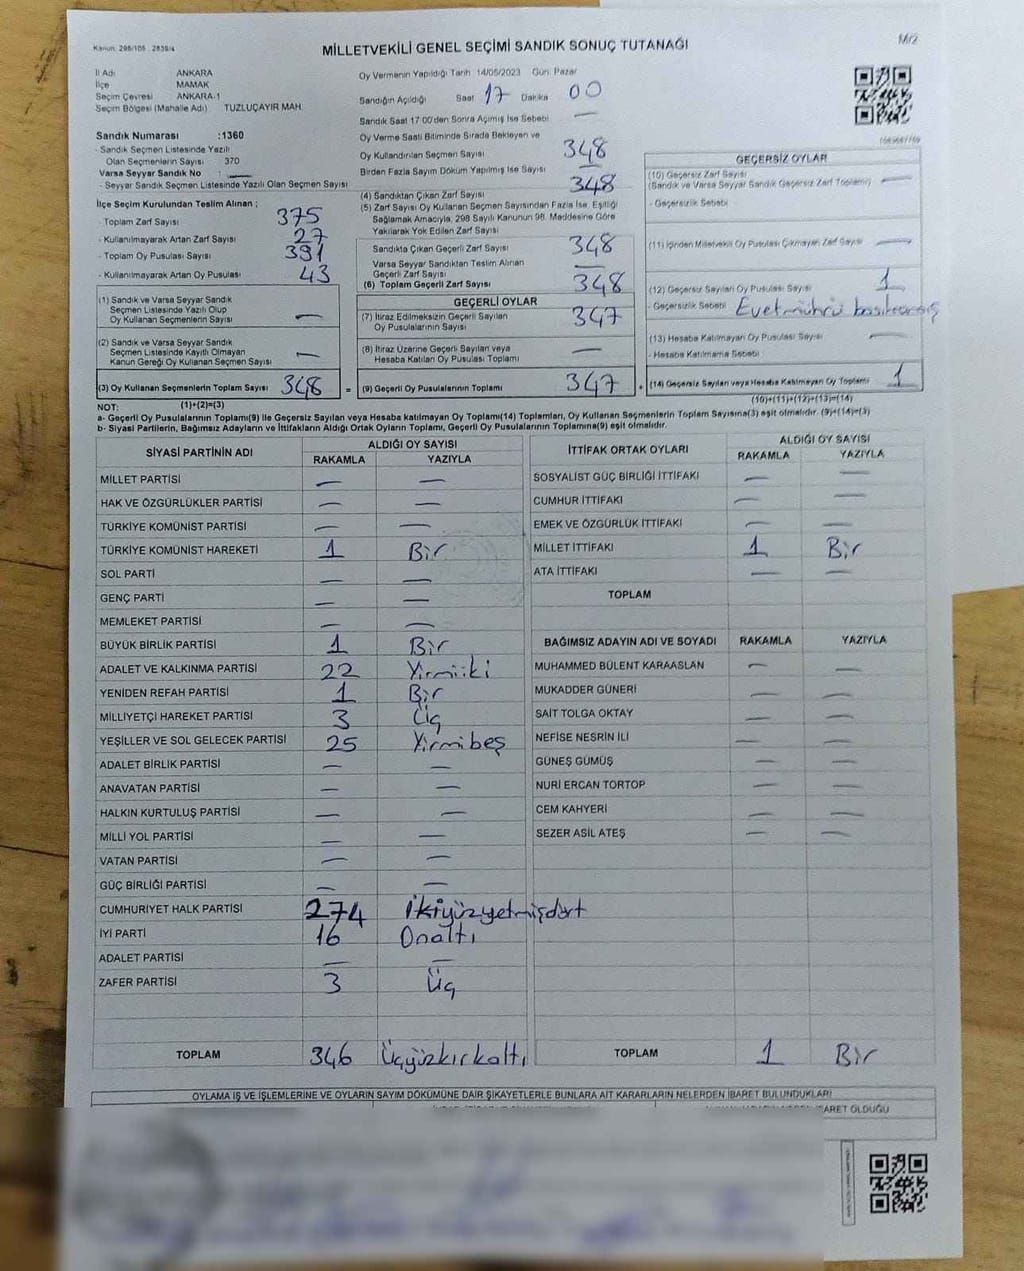 Kanun: 298/105 . 2839/4
MİLLETVEKİLİ GENEL SEÇİMİ SANDIK SONUÇ TUTANAĞI
M/2
İl Adı ANKARA
İlçe MAMAK
Seçim Çevresi ANKARA-1
Seçim Bölgesi (Mahalle Adı) TUZLUÇAYIR MAH.
Sandık Numarası :1360
- Sandık Seçmen Listesinde Yazılı
Olan Seçmenlerin Sayısı 370
Varsa Seyyar Sandık No : —
- Seyyar Sandık Seçmen Listesinde Yazılı Olan Seçmen Sayısı
İlçe Seçim Kurulundan Teslim Alınan ;
- Toplam Zarf Sayısı 375
- Kullanılmayarak Artan Zarf Sayısı 27
- Toplam Oy Pusulası Sayısı 391
- Kullanılmayarak Artan Oy Pusulası 43
(1) Sandık ve Varsa Seyyar Sandık
Seçmen Listesinde Yazılı Olup
Oy Kullanan Seçmenlerin Sayısı —
(2) Sandık ve Varsa Seyyar Sandık
Seçmen Listesinde Kayıtlı Olmayan
Kanun Gereği Oy Kullanan Seçmen Sayısı —
(3) Oy Kullanan Seçmenlerin Toplam Sayısı 348 =
(1)+(2)=(3)
Oy Vermenin Yapıldığı Tarih 14/05/2023 Gün Pazar
Sandığın Açıldığı Saat 17 Dakika 00
Sandık Saat 17:00'den Sonra Açımış İse Sebebi —
Oy Verme Saati Bitiminde Sırada Bekleyen ve
Oy Kullandırılan Seçmen Sayısı 348
Birden Fazla Sayım Döküm Yapılmış İse Sayısı —
(4) Sandıktan Çıkan Zarf Sayısı 348
(5) Zarf Sayısı Oy Kullanan Seçmen Sayısından Fazla İse, Eşitliği
Sağlamak Amacıyla, 298 Sayılı Kanunun 98. Maddesine Göre
Yakılarak Yok Edilen Zarf Sayısı
Sandıkta Çıkan Geçerli Zarf Sayısı 348
Varsa Seyyar Sandıktan Teslim Alınan
Geçerli Zarf Sayısı —
(6) Toplam Geçerli Zarf Sayısı 348
GEÇERLİ OYLAR
(7) İtiraz Edilmeksizin Geçerli Sayılan
Oy Pusulalarının Sayısı 347
(8) İtiraz Üzerine Geçerli Sayılan veya
Hesaba Katılan Oy Pusulası Toplamı —
(9) Geçerli Oy Pusulalarının Toplamı 347
GEÇERSİZ OYLAR
(10) Geçersiz Zarf Sayısı
(Sandık ve Varsa Seyyar Sandık Geçersiz Zarf Toplamı) —
- Geçersizlik Sebebi
(11) İçinden Milletvekili Oy Pusulası Çıkmayan Zarf Sayısı —
(12) Geçersiz Sayılan Oy Pusulası Sayısı 1
- Geçersizlik Sebebi Evet mührü
(13) Hesaba Katılmayan Oy Pusulası Sayısı —
- Hesaba Katılmama Sebebi
(14) Geçersiz Sayılan veya Hesaba Katılmayan Oy Toplamı 1
(10)+(11)+(12)+(13)=(14)
NOT:
a- Geçerli Oy Pusulalarının Toplamı(9) ile Geçersiz Sayılan veya Hesaba katılmayan Oy Toplamı(14) Toplamları, Oy Kullanan Seçmenlerin Toplam Sayısına(3) eşit olmalıdır. (9)+(14)=(3)
b- Siyasi Partilerin, Bağımsız Adayların ve İttifakların Aldığı Ortak Oyların Toplamı, Geçerli Oy Pusulalarının Toplamına(9) eşit olmalıdır.
SİYASİ PARTİNİN ADI ALDIĞI OY SAYISI
RAKAMLA YAZIYLA
MİLLET PARTİSİ — —
HAK VE ÖZGÜRLÜKLER PARTİSİ — —
TÜRKİYE KOMÜNİST PARTİSİ — —
TÜRKİYE KOMÜNİST HAREKETİ 1 Bir
SOL PARTİ — —
GENÇ PARTİ — —
MEMLEKET PARTİSİ — —
BÜYÜK BİRLİK PARTİSİ 1 Bir
ADALET VE KALKINMA PARTİSİ 22 Yirmiiki
YENİDEN REFAH PARTİSİ 1 Bir
MİLLİYETÇİ HAREKET PARTİSİ 3 Üç
YEŞİLLER VE SOL GELECEK PARTİSİ 25 Yirmibeş
ADALET BİRLİK PARTİSİ — —
ANAVATAN PARTİSİ — —
HALKIN KURTULUŞ PARTİSİ — —
MİLLİ YOL PARTİSİ — —
VATAN PARTİSİ — —
GÜÇ BİRLİĞİ PARTİSİ — —
CUMHURİYET HALK PARTİSİ 274 İkiyüzyetmişdört
İYİ PARTİ 16 Onaltı
ADALET PARTİSİ — —
ZAFER PARTİSİ 3 Üç
TOPLAM 346 Üçyüzkırkaltı
İTTİFAK ORTAK OYLARI ALDIĞI OY SAYISI
RAKAMLA YAZIYLA
SOSYALİST GÜÇ BİRLİĞİ İTTİFAKI — —
CUMHUR İTTİFAKI — —
EMEK VE ÖZGÜRLÜK İTTİFAKI — —
MİLLET İTTİFAKI 1 Bir
ATA İTTİFAKI — —
TOPLAM
BAĞIMSIZ ADAYIN ADI VE SOYADI RAKAMLA YAZIYLA
MUHAMMED BÜLENT KARAASLAN — —
MUKADDER GÜNERİ — —
SAİT TOLGA OKTAY — —
NEFİSE NESRİN İLİ — —
GÜNEŞ GÜMÜŞ — —
NURİ ERCAN TORTOP — —
CEM KAHYERİ — —
SEZER ASİL ATEŞ — —
TOPLAM 1 Bir
OYLAMA İŞ VE İŞLEMLERİNE VE OYLARIN SAYIM DÖKÜMÜNE DAİR ŞİKAYETLERLE BUNLARA AİT KARARLARIN NELERDEN İBARET BULUNDUKLARI